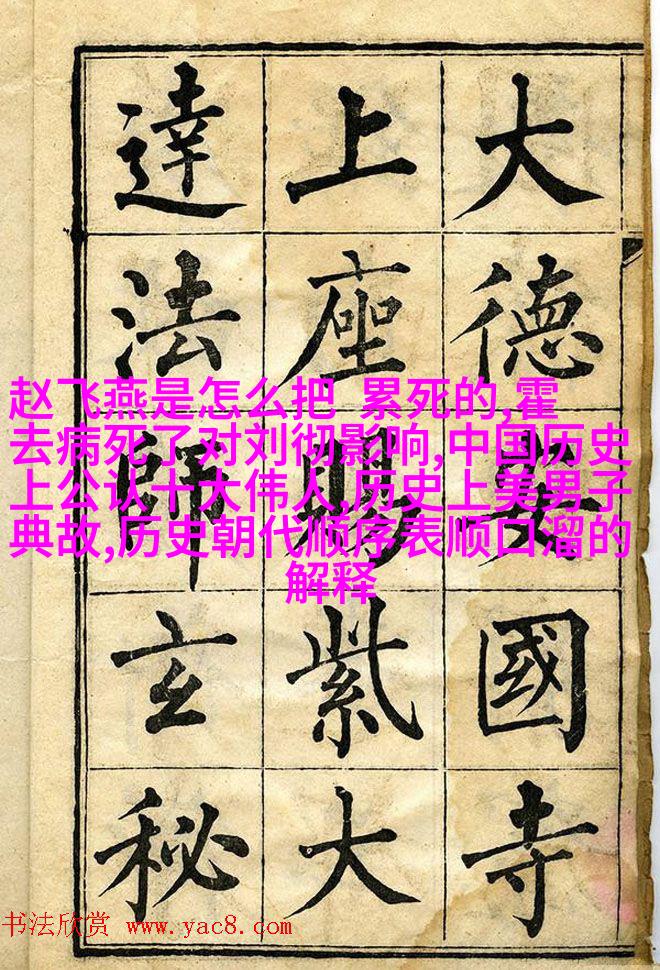 大德安國寺
上座賜紫大
達法師玄秘
赵飞燕是怎么把 累死的,霍
去病死了对刘彻影响,中国历史
上公认十大伟人,历史上美男子
典故,历史朝代顺序表顺口溜的
解释
书法欣赏 www.yac8.com